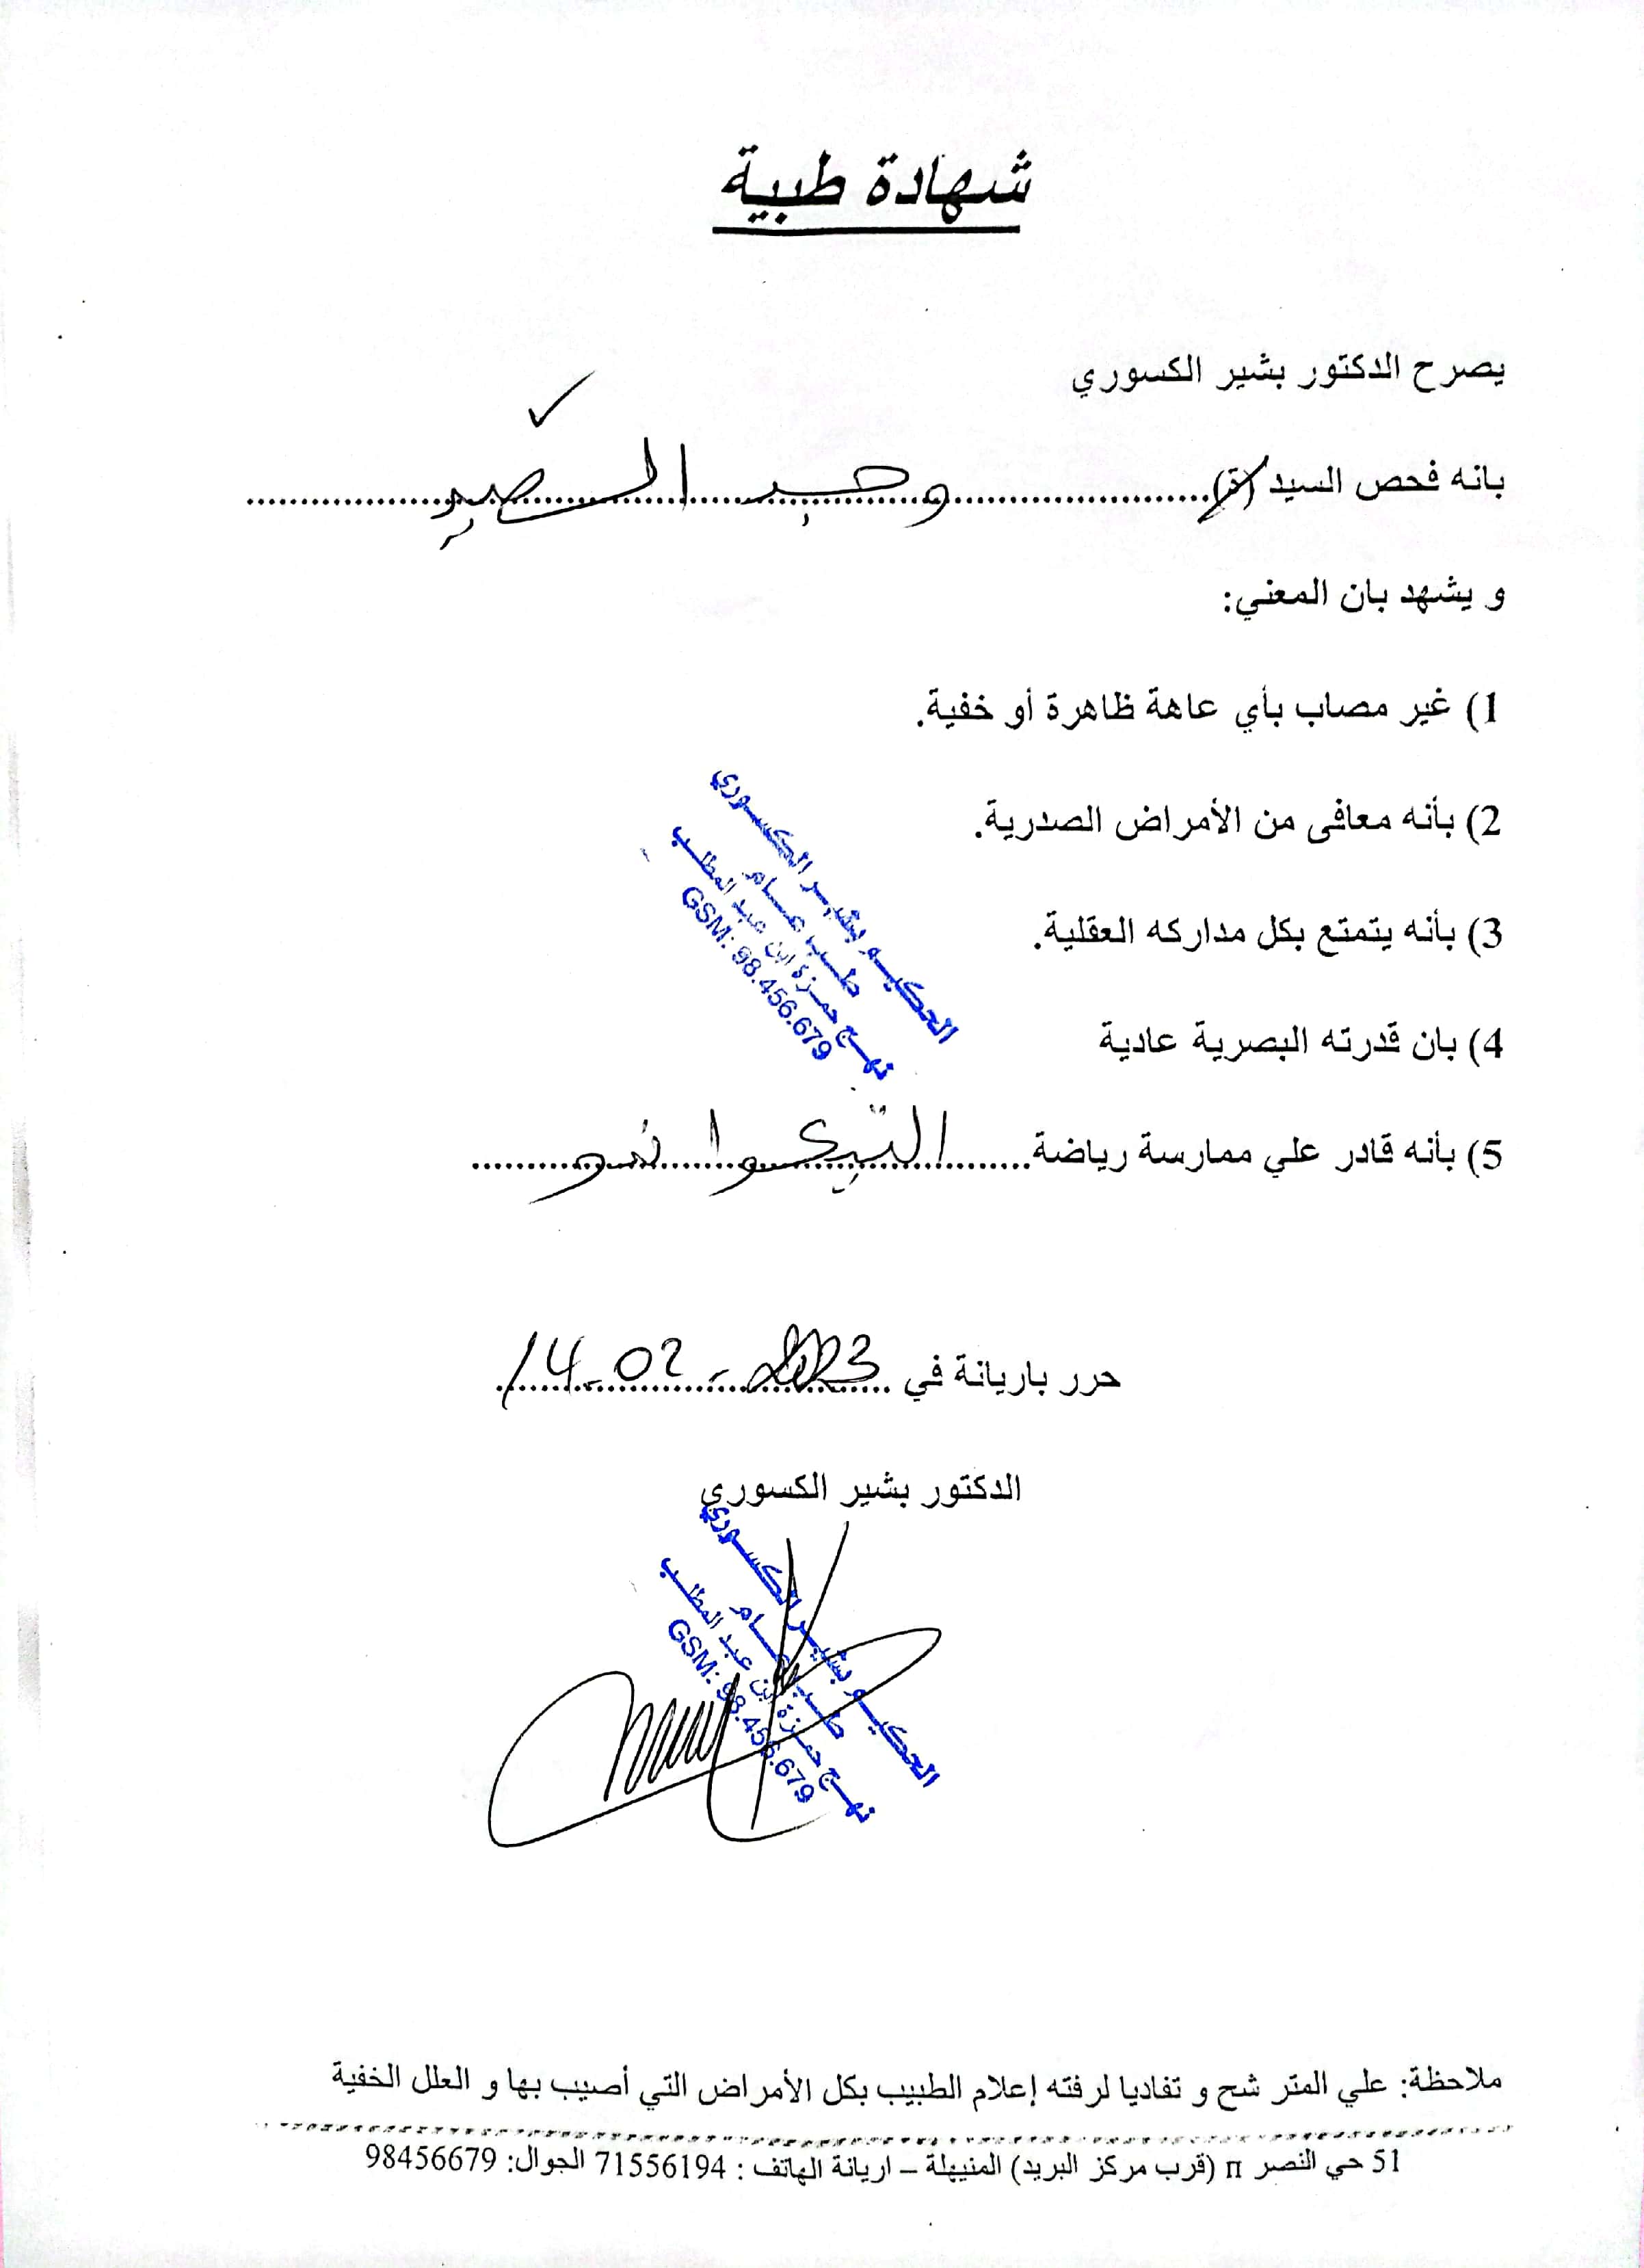 شهادة طبية
يصرح الدكتور بشير الكسوري
بانه فحص السيد (ة)
و يشهد بان المعني:
1) غير مصاب بأي عاهة ظاهرة أو خفية.
2) بأنه معافى من الأمراض الصدرية.
3) بأنه يتمتع بكل مداركه العقلية.
الحكيم بشير الكسوري
طب عام
نهج حمزة ابن عبد المطلب
GSM: 98.456.679
4) بان قدرته البصرية عادية
5) بأنه قادر علي ممارسة رياضة التيكواندو
حرر باريانة في 14-02-2023
الدكتور بشير الكسوري
الحكيم بشير الكسوري
طب عام
نهج حمزة ابن عبد المطلب
GSM: 98.456.679
ملاحظة: علي المتر شح و تفاديا لرفته إعلام الطبيب بكل الأمراض التي أصيب بها و العلل الخفية
51 حي النصر п (قرب مركز البريد) المنيهلة – اريانة الهاتف : 71556194 الجوال: 98456679